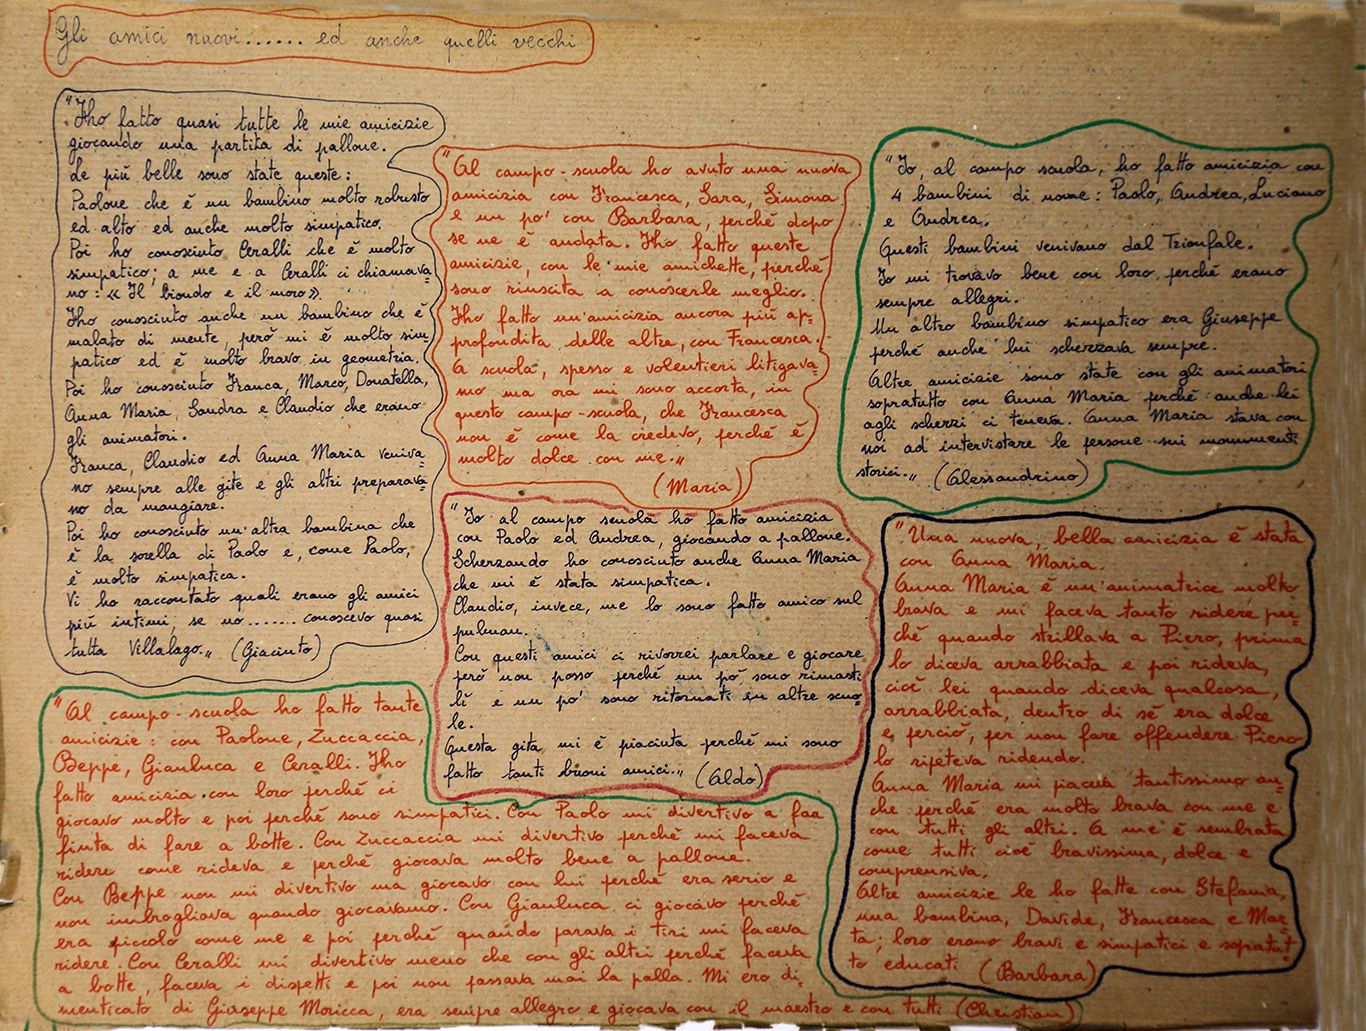 Gli amici nuovi...... ed anche quelli vecchi
"Ho fatto quasi tutte le mie amicizie
giocando una partita di pallone.
Le più belle sono state queste:
Paolone che è un bambino molto robusto
ed alto ed anche molto simpatico.
Poi ho conosciuto Ceralli che è molto
simpatico; a me e a Ceralli ci chiamava=
no: «Il biondo e il moro».
Ho conosciuto anche un bambino che è
malato di mente, però mi è molto sim=
patico ed è molto bravo in geometria.
Poi ho conosciuto Franca, Marco, Donatella,
Anna Maria, Sandra e Claudio che erano
gli animatori.
Franca, Claudio ed Anna Maria veniva=
no sempre alle gite e gli altri preparava=
no da mangiare.
Poi ho conosciuto un'altra bambina che
è la sorella di Paolo e, come Paolo,
è molto simpatica.
Vi ho raccontato quali erano gli amici
più intimi, se no....... conoscevo quasi
tutta Villalago." (Giacinto)
"Al campo-scuola ho avuto una nuova
amicizia con Francesca, Sara, Simona
e un po' con Barbara, perché dopo
se ne è andata. Ho fatto queste
amicizie, con le mie amichette, perché
sono riuscita a conoscerle meglio.
Ho fatto un'amicizia ancora più ap=
profondita delle altre, con Francesca.
A scuola, spesso e volentieri litigava=
mo ma ora mi sono accorta, in
questo campo-scuola, che Francesca
non è come la credevo, perché è
molto dolce con me."
(Maria)
"Io, al campo scuola, ho fatto amicizia con
4 bambini di nome: Paolo, Andrea, Luciano
e Andrea.
Questi bambini venivano dal Trionfale.
Io mi trovavo bene con loro, perché erano
sempre allegri.
Un altro bambino simpatico era Giuseppe
perché anche lui scherzava sempre.
Altre amicizie sono state con gli animatori
sopratutto con Anna Maria perché anche lei
agli scherzi ci teneva. Anna Maria stava con
noi ad intervistare le persone sui monumenti
storici." (Alessandrino)
"Io al campo scuola ho fatto amicizia
con Paolo ed Andrea, giocando a pallone.
Scherzando ho conosciuto anche Anna Maria
che mi è stata simpatica.
Claudio, invece, me lo sono fatto amico sul
pulman.
Con questi amici ci rivorrei parlare e giocare
però non posso perché un pò sono rimasti
lì e un po' sono ritornati in altre scuo=
le.
Questa gita mi è piaciuta perché mi sono
fatto tanti buoni amici." (Aldo)
"Una nuova, bella amicizia è stata
con Anna Maria.
Anna Maria è un'animatrice molto
brava e mi faceva tanto ridere per=
ché quando strillava a Piero, prima
lo diceva arrabbiata e poi rideva,
cioè lei quando diceva qualcosa,
arrabbiata, dentro di sé era dolce
e, perciò, per non fare offendere Piero
lo ripeteva ridendo.
Anna Maria mi piaceva tantissimo an=
che perché era molto brava con me e
con tutti gli altri. A me è sembrata
come tutti cioè bravissima, dolce e
comprensiva.
Altre amicizie le ho fatte con Stefania,
una bambina, Davide, Francesca e Mar=
ta; loro erano bravi e simpatici e sopratut=
to educati (Barbara)
"Al campo-scuola ho fatto tante
amicizie: con Paolone, Zuccaccia,
Beppe, Gianluca e Ceralli. Ho
fatto amicizia con loro perché ci
giocavo molto e poi perché sono simpatici. Con Paolo mi divertivo a far
finta di fare a botte. Con Zuccaccia mi divertivo perché mi faceva
ridere come rideva e perché giocava molto bene a pallone.
Con Beppe non mi divertivo ma giocavo con lui perché era serio e
non imbrogliava quando giocavamo. Con Gianluca ci giocavo perché
era piccolo come me e poi perché quando parava i tiri mi faceva
ridere. Con Ceralli mi divertivo meno che con gli altri perché faceva
a botte, faceva i dispetti e poi non passava mai la palla. Mi ero di=
menticato di Giuseppe Moricca, era sempre allegro e giocava con il maestro e con tutti (Christian)